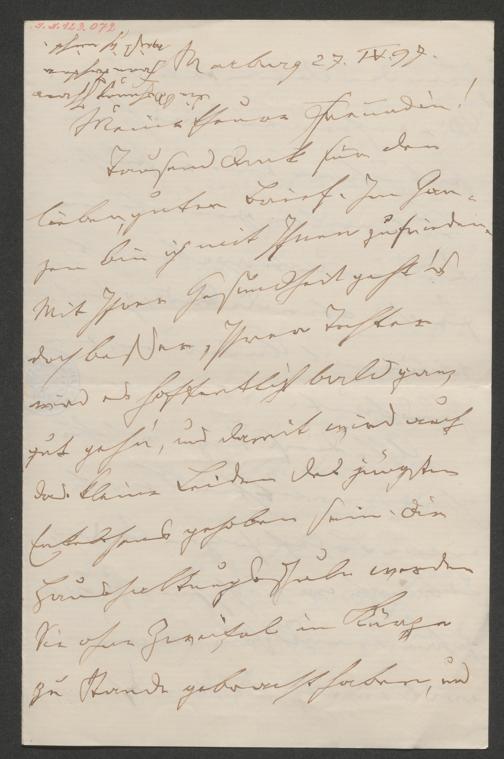 I.I.123.072
Marburg 27. IV. 97.
Meine theure Freundin!
Tausend Dank für den
lieben, guten Brief. Im Gan-
zen bin ich mit Ihnen zufrieden.
Mit Ihrer Gesundheit geht's
doch besser, Ihrer Tochter
wird es hoffentlich bald ganz
gut gehn, und damit wird auch
das kleine Leiden des jüngsten
Enkelchens gehoben sein. Die
Haushaltungsschule werden
Sie ohne Zweifel in Kürze
zu Stande gebracht haben, und